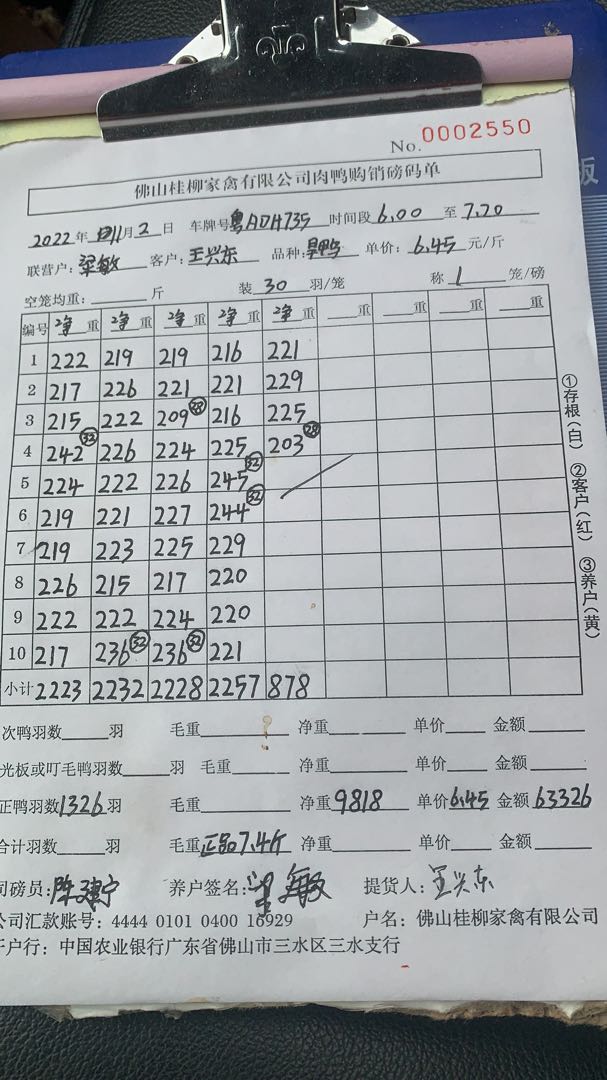 No. 0002550
佛山桂柳家禽有限公司肉鸭购销磅码单
2022年 11月 2 日 车牌号 粤ADH735 时间段 6.00 至 7.20
联营户: 梁敏 客户: 王兴东 品种: 单价: 6.45 元/斤
空笼均重: 斤 装 30 羽/笼 称 1 笼/磅
编号 净重 净重 净重 净重 净重 重 重 重 重
1 222 219 219 216 221
2 217 226 221 221 229
3 215 222 209 28 216 225
4 242 32 226 224 225 203 28
5 224 222 226 245 32
6 219 221 227 244 32
7 219 223 225 229
8 226 215 217 220
9 222 222 224 220
10 217 236 32 236 32 221
小计 2223 2232 2228 2257 878
①存根(白) ②客户(红) ③养户(黄)
次鸭羽数 羽 毛重 净重 单价 金额
光板或叮毛鸭羽数 羽 毛重 净重 单价 金额
正鸭羽数 1326 羽 毛重 净重 9818 单价 6.45 金额 63326
合计羽数 羽 毛重 正品7.4斤 净重 单价 金额
司磅员: 陈建宁 养户签名: 梁敏 提货人: 王兴东
公司汇款账号: 4444 0101 0400 16929 户名: 佛山桂柳家禽有限公司
开户行: 中国农业银行广东省佛山市三水区三水支行